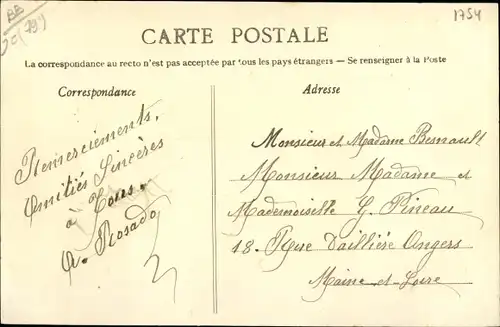 1754
CARTE POSTALE
La correspondance au recto n'est pas acceptée par tous les pays étrangers — Se renseigner à la Poste
Correspondance
Remerciements,
Amitiés Sincères
à Tous.
A. Rosado
Adresse
Monsieur et Madame Besnault
Monsieur Madame et
Mademoiselle G. Pineau
18. Rue Daillière Angers
Maine-et-Loire